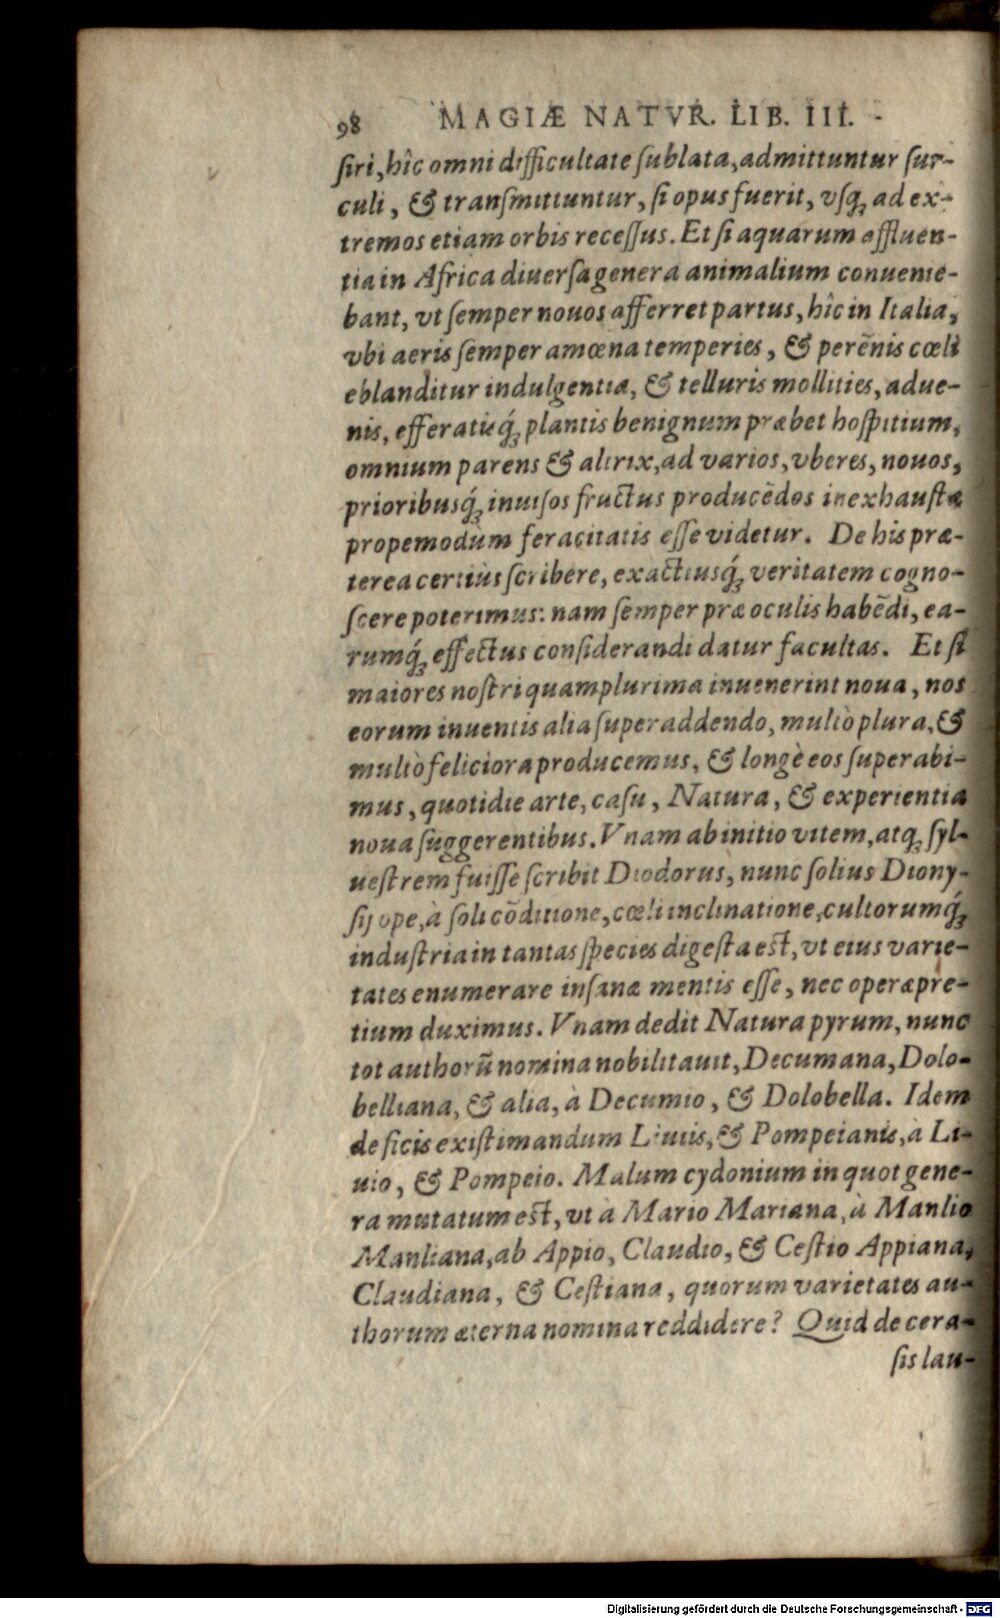 98 MAGIÆ NATVR. LIB. III.
ſiri, hîc omni difficultate ſublata, admittuntur ſur-
culi, & tranſmittuntur, ſi opus fuerit, vſq; ad ex-
tremos etiam orbis receſſus. Et ſi aquarum affluen-
tia in Africa diuerſa genera animalium conuenie-
bant, vt ſemper nouos afferret partus, hîc in Italia,
vbi aeris ſemper amœna temperies, & perēnis cœli
eblanditur indulgentia, & telluris mollities, adue-
nis, efferatisq́; plantis benignum præbet hoſpitium,
omnium parens & altrix, ad varios, vberes, nouos,
prioribusq́; inuiſos fructus producēdos inexhauſtæ
propemodum feracitatis eſſe videtur. De his præ-
terea certiùs ſcribere, exactiusq́; veritatem cogno-
ſcere poterimus: nam ſemper præ oculis habēdi, ea-
rumq́; effectus conſiderandi datur facultas. Et ſi
maiores noſtri quamplurima inuenerint noua, nos
eorum inuentis alia ſuperaddendo, multò plura, &
multò feliciora producemus, & longè eos ſuperabi-
mus, quotidie arte, caſu, Natura, & experientia
noua ſuggerentibus. Vnam ab initio vitem, atq; ſyl-
ueſtrem fuiſſe ſcribit Diodorus, nunc ſolius Diony-
ſij ope, à ſoli cōditione, cœli inclinatione, cultorumq́;
induſtria in tantas ſpecies digeſta eſt, vt eius varie-
tates enumerare inſanæ mentis eſſe, nec operæpre-
tium duximus. Vnam dedit Natura pyrum, nunc
tot authorū nomina nobilitauit, Decumana, Dolo-
belliana, & alia, à Decumio, & Dolobella. Idem
de ficis exiſtimandum Liuiis, & Pompeianis, à Li-
uio, & Pompeio. Malum cydonium in quot gene-
ra mutatum eſt, vt à Mario Mariana, à Manlio
Manliana, ab Appio, Claudio, & Ceſtio Appiana,
Claudiana, & Ceſtiana, quorum varietates au-
thorum æterna nomina reddidere? Quid de cera-
ſis lau-
Digitalisierung gefördert durch die Deutsche Forschungsgemeinschaft - DFG